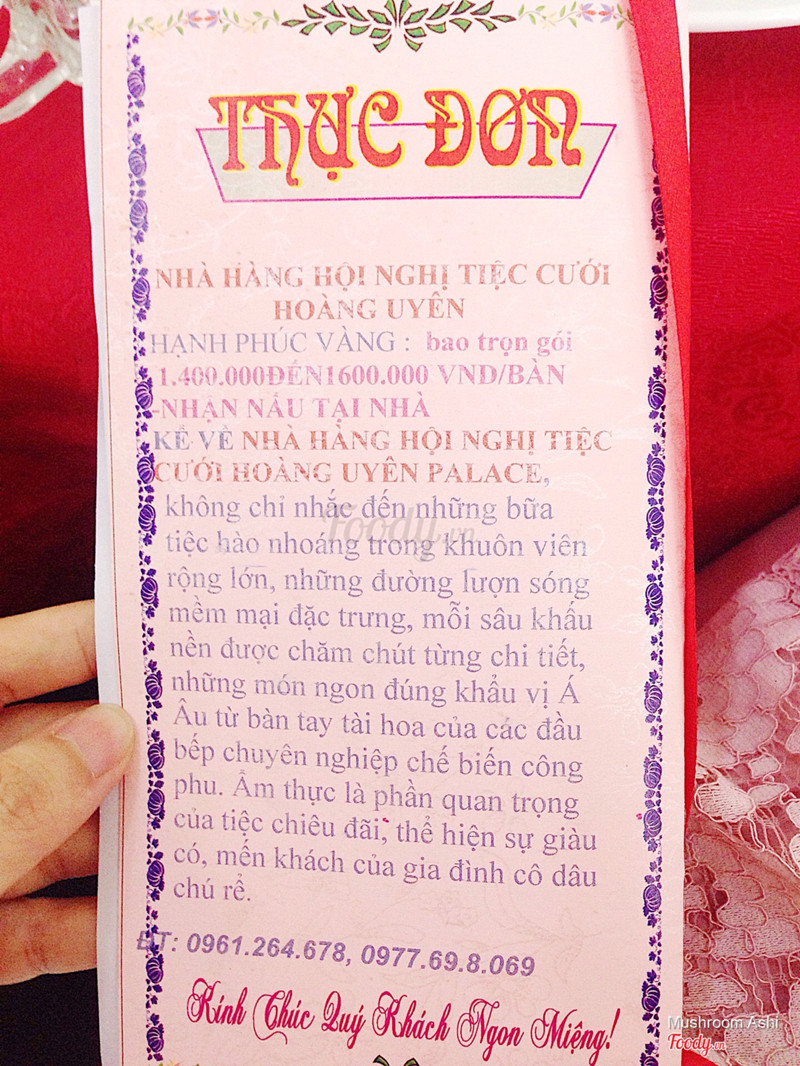 THỰC ĐƠN
NHÀ HÀNG HỘI NGHỊ TIỆC CƯỚI
HOÀNG UYÊN
HẠNH PHÚC VÀNG : bao trọn gói
1.400.000ĐẾN1600.000 VND/BÀN
-NHẬN NẤU TẠI NHÀ
KỂ VỀ NHÀ HÀNG HỘI NGHỊ TIỆC
CƯỚI HOÀNG UYÊN PALACE,
không chỉ nhắc đến những bữa
tiệc hào nhoáng trong khuôn viên
rộng lớn, những đường lượn sóng
mềm mại đặc trưng, mỗi sâu khấu
nền được chăm chút từng chi tiết,
những món ngon đúng khẩu vị Á
Âu từ bàn tay tài hoa của các đầu
bếp chuyên nghiệp chế biến công
phu. Ẩm thực là phần quan trọng
của tiệc chiêu đãi, thể hiện sự giàu
có, mến khách của gia đình cô dâu
chú rể.
ĐT: 0961.264.678, 0977.69.8.069
Kính Chúc Quý Khách Ngon Miệng!
Foody.vn
Mushroom Ashi
Foody.vn